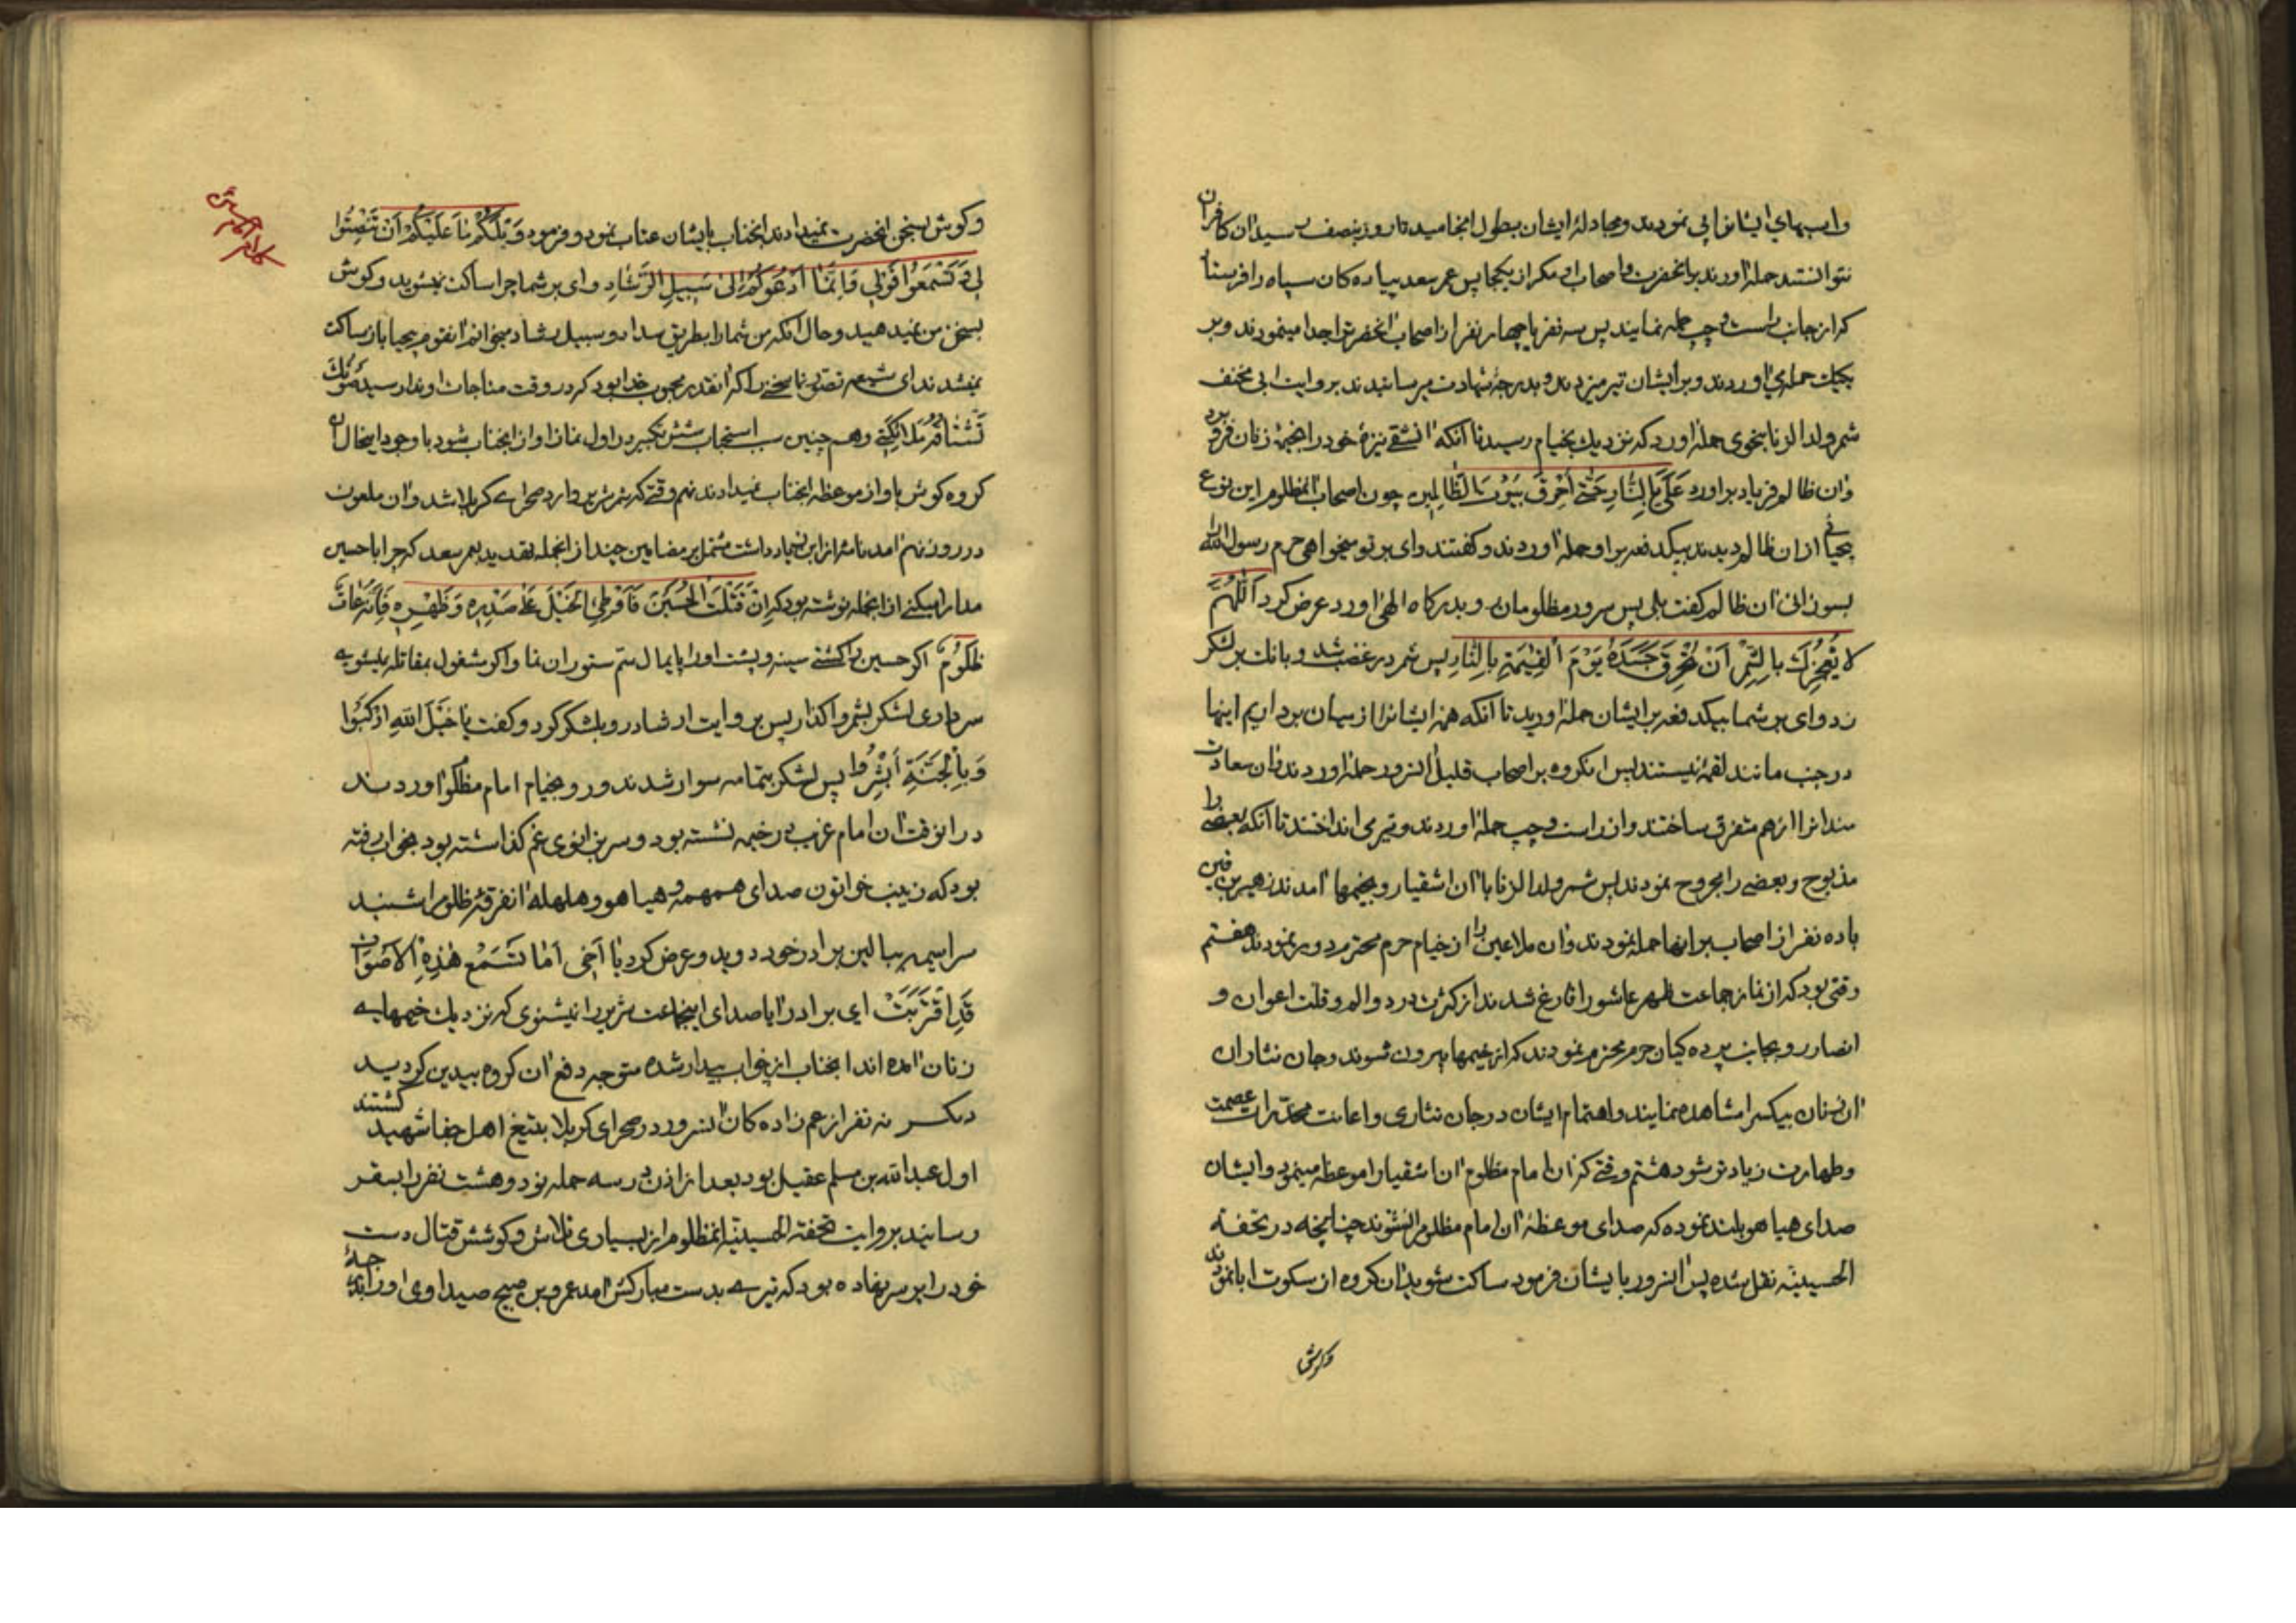 واسبهای ایشانرا پی نمودند و مجادلهٔ ایشان بطول انجامید تا روز بنصف رسید ان کافران
نتوانستند حمله اورند بر انحضرت و اصحاب او مکر از یکجا پس عمر سعد پیاده کان سپاه را فرستا
که از جانب راست و چپ حمله نمایند پس سه نفر یا چهار نفر از اصحاب انحضرت را جدا مینمودند و بر
یکیک حمله می اوردند و بر ایشان تیر میزدند و بدرجهٔ شهادت میرسانیدند بروایت ابی مخنف
شمر ولد الزنا بنحوی حمله اورد که نزدیک بخیام رسید تا آنکه ان شقی نیزهٔ خود را بخیمهٔ زنان فرو برد
و ان ظالم فریاد براورد عَلَیَّ بِالنّارِ حَتّی اُحْرِقَ بُیُوتَ الظّالِمینَ چون اصحاب انمظلوم این نوع
بیحیائی از ان ظالم دیدند بیکدفعه بر او حمله اوردند و کفتند وای بر تو میخواهی حرم رسول الله
بسوزانی ان ظالم کفت بلی پس سرور مظلومان رو بدرکاه الهی اورد عرض کرد اَللّهُمَّ
لا یُعْجِزُكَ بِالشِّمْرِ اَنْ تُحْرِقَ جَسَدَهُ یَوْمَ الْقِیمَةِ بِالنّارِ پس شمر در غضب شد و بانک بر لشکر
زد وای بر شما بیکدفعه بر ایشان حمله اورید تا آنکه همهٔ ایشانرا از میان برداریم اینها
در جنب ما نند لقمهٔ نیستند پس انکروه بر اصحاب قلیل النسرور حمله اوردند و ان سعادت
مندانرا از هم متفرق ساختند و از راست و چپ حمله اوردند و تیر می انداختند تا آنکه بعضی را
مذبوح و بعضی را مجروح نمودند پس شمر ولد الزنا با ان اشقیا رو بخیمها امدند زهیر بن قین
با ده نفر از اصحاب بر انها حمله نمودند و ان ملاعین را از خیام حرم محترم دور نمودند هفتم
وقتی بود که از نماز جماعت ظهر عاشورا فارغ شدند از کثرت درد و الم و قلت اعوان و
انصار رو بجانب پرده کیان حرم محترم نمودند که از خیمها بیرون شوند و جان نثاران
ان زنان بیکس را مشاهده نمایند و اهتمام ایشان در جان نثاری و اعانت مخدرات عصمت
و طهارت زیادتر شود هشتم وقتی که ان امام مظلوم ان اشقیا را موعظه مینمود و ایشان
صدای هیاهو بلند نموده که صدای موعظهٔ ان امام مظلوم را نشنوند چنانچه در تحفة
الحسینیّه نقل شده پس انسرور بایشان فرمود ساکت شوید ان کروه از سکوت ابا نمودند
وکوش
وکوش بسخن انحضرت نمیدادند انجناب بایشان عتاب نمود و فرمود وَیْلَکُمْ ما عَلَیْکُمْ اَنْ تَنْصِتُوا
لی فَتَسْمَعُوا قَوْلی وَ اِنَّما اَدْعُوکُمْ اِلی سَبیلِ الرَّشادِ وای بر شما چرا ساکت نمیشوید و کوش
بسخن من نمیدهید و حال انکه من شما را بطریق سداد و سبیل رشاد میخوانم انقوم بیحیا باز ساکت
نمیشدند ای شیعه تصوّر نما سخن را که انقدر محبوب خدا بود که در وقت مناجات او ندا رسید صَوْتُكَ
تَشْتاقُهُ مَلائِکَتی و هم چنین سبب استحباب شش تکبیر در اول نماز اواز انجناب شود با وجود اینحال ان
کروه کوش باواز موعظه انجناب نمیدادند نهم وقتی که شمر شریر وارد صحرای کربلا شد و ان ملعون
در روز نهم امد نامهٔ از ابن زیاد داشت مشتمل بر مضامین چند از انجمله تهدید بعمر سعد که چرا با حسین
مدارا میکنی از انجمله نوشته بود که اِنْ قَتَلْتَ الْحُسَیْنَ فَاَوْطِئِ الْخَیْلَ عَلی صَدْرِهِ وَ ظَهْرِهِ فَاِنَّهُ عاقٌّ
ظَلُومٌ اکر حسین را کشتی سینه و پشت او را پایمال سمّ ستوران نما و اکر مشغول بمقاتله نمیشوی
سرداری لشکر بشمر واکذار پس بروایت ارشاد رو بلشکر کرد و کفت یا خَیْلَ اللهِ ارْکَبُوا
وَ بِالْجَنَّةِ اَبْشِرُوا پس لشکر بتمامه سوار شدند و رو بخیام امام مظلوم اوردند
در انوقت ان امام غریب در خیمه نشسته بود و سر بزانوی غم کذاشته بود بخواب رفته
بود که زینب خواتون صدای همهمه و هیاهو و هلهله انفرقهٔ ظلوم را شنید
سراسیمه ببالین برادر خود دوید و عرض کرد یا اَخی اَما تَسْمَعُ هذِهِ الاَصْواتَ
قَدِ اقْتَرَبَتْ ای برادر ایا صدای اینجماعت شریر را نمیشنوی که نزدیک خیمهای
زنان امده اند انجناب از خواب بیدار شده متوجه دفع ان کروه بیدین کردید
دیکر نه نفر از عم زاده کان انسرور در صحرای کربلا بتیغ اهل جفا شهید کشتند
اول عبدالله بن مسلم عقیل بود بعد از اذن در سه حمله نود و هشت نفر را بسقر
رسانید بروایت تحفة الحسینیّه انمظلوم از بسیاری تلاش و کوشش قتال دست
خود را بر سر نهاده بود که تیری بدست مبارکش امد عمرو بن صبیح صیداوی او را